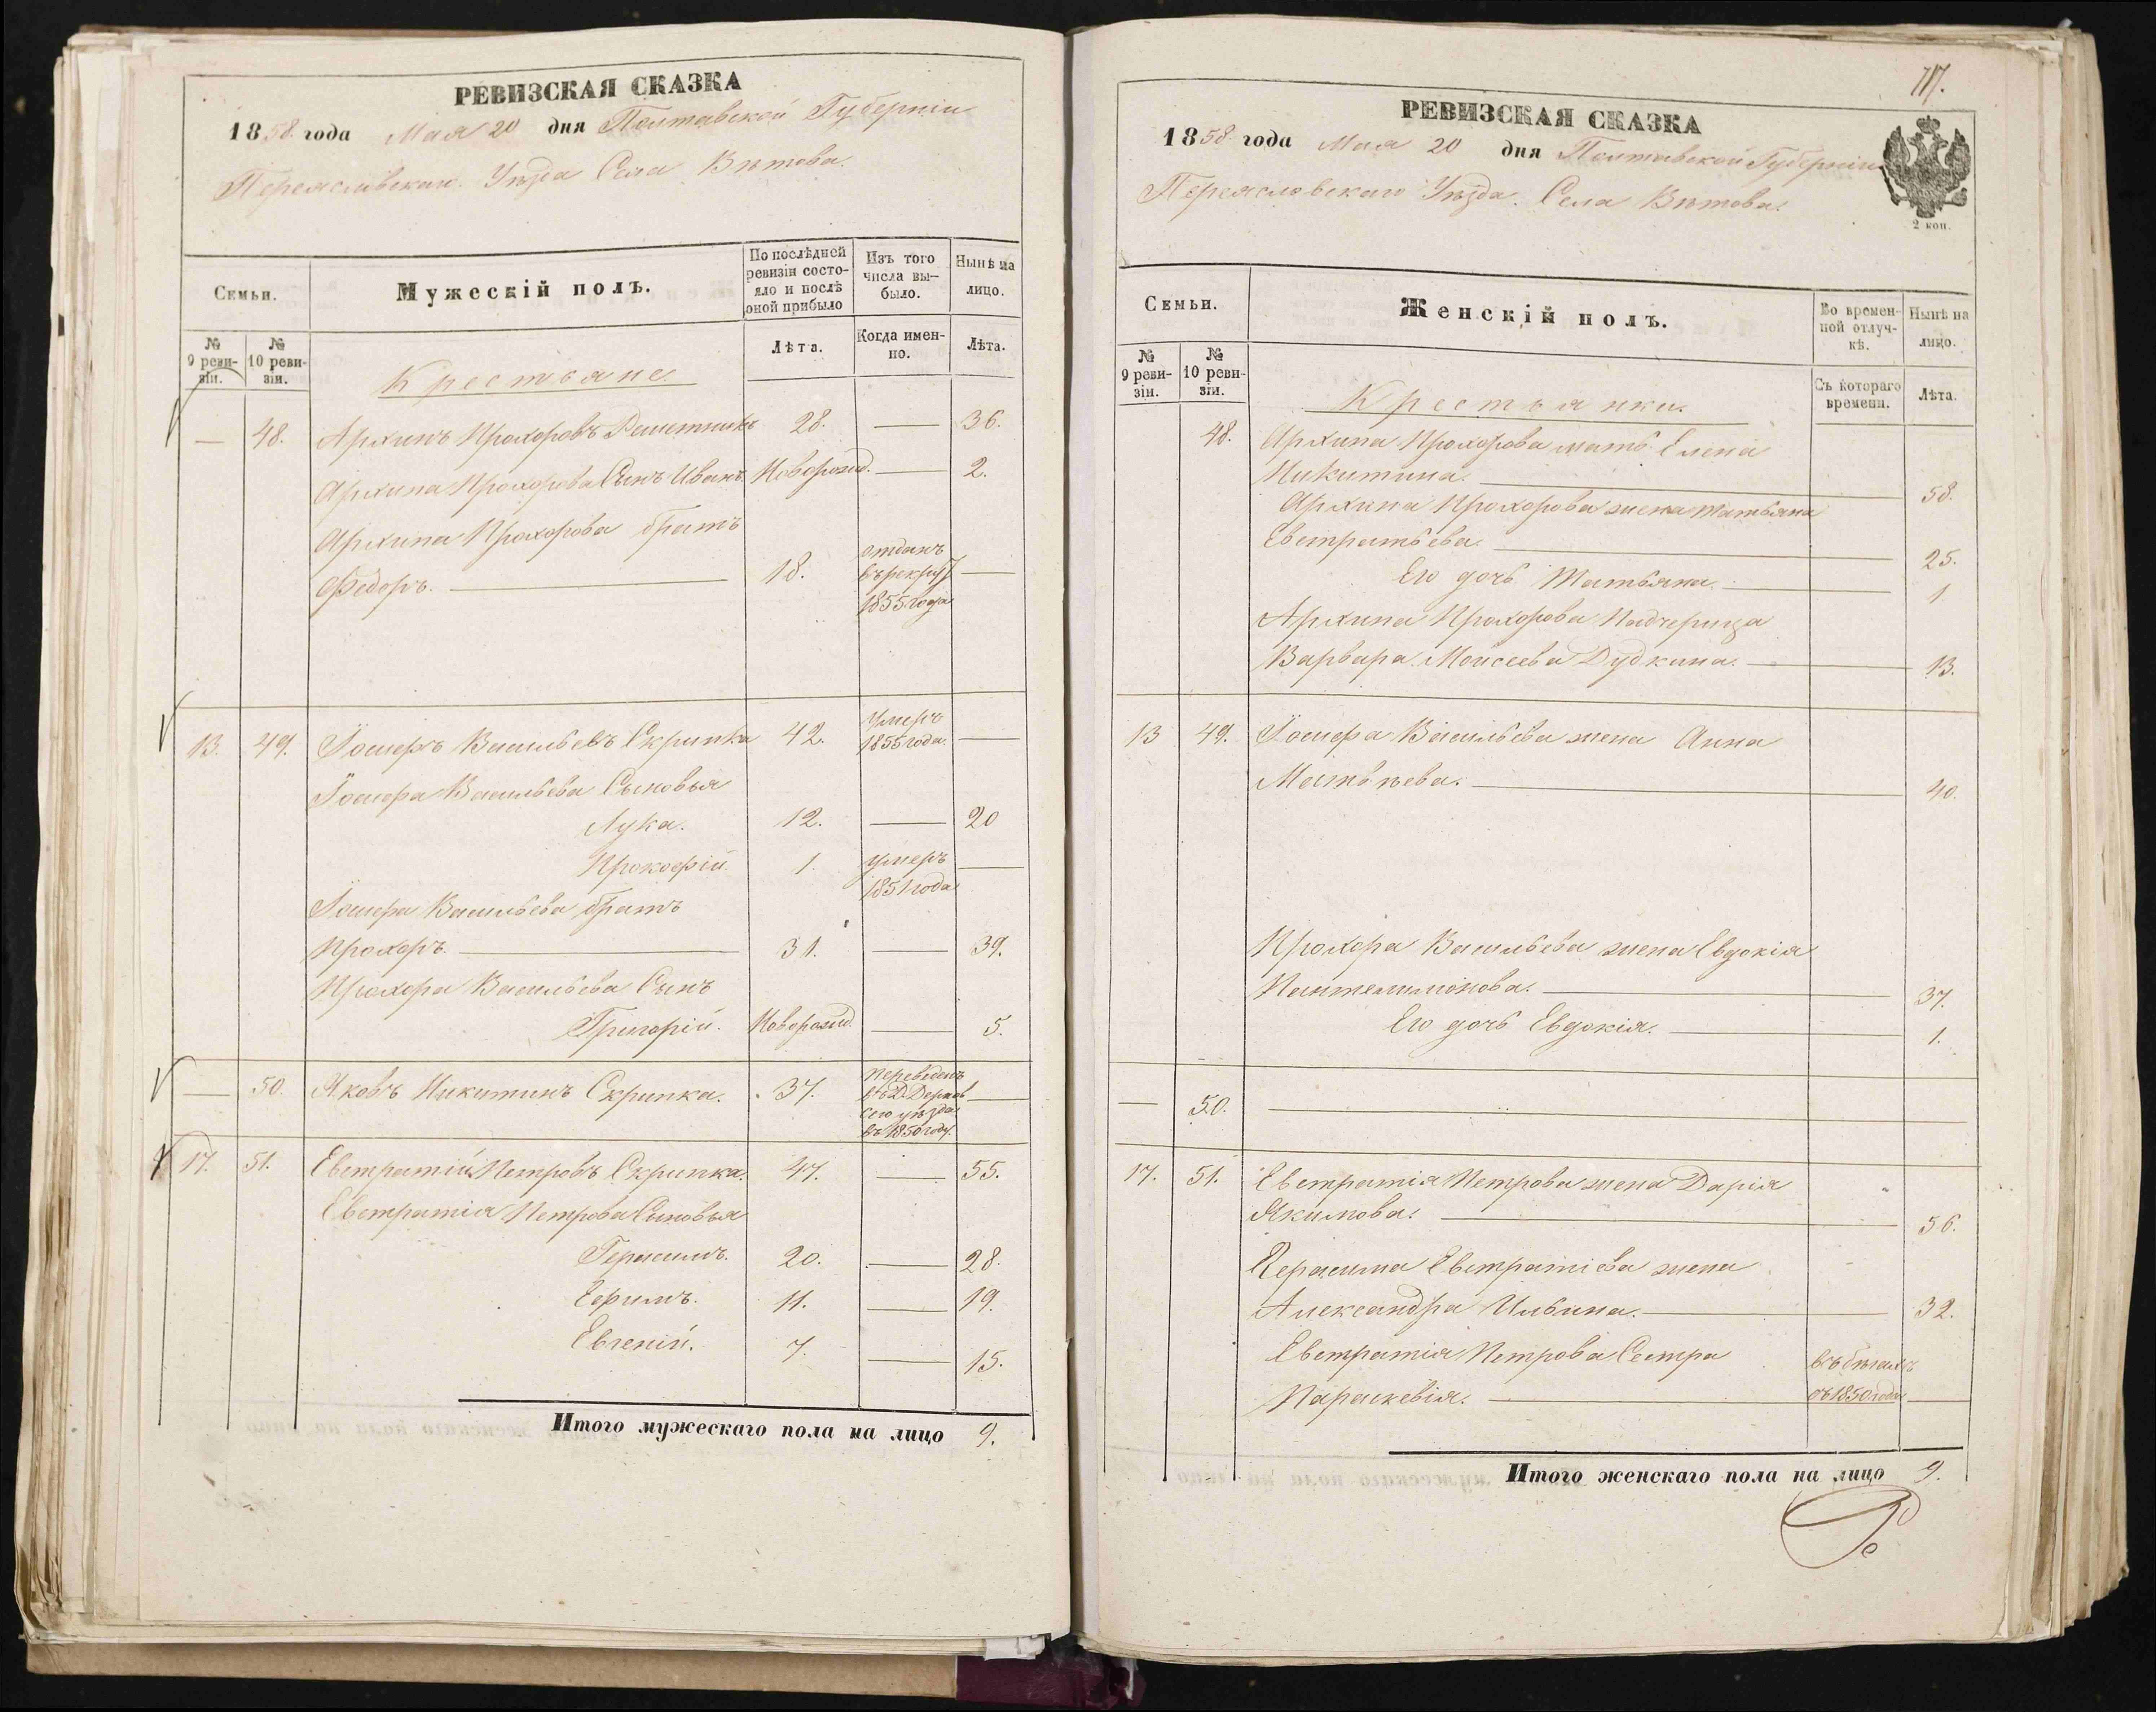 РЕВИЗСКАЯ СКАЗКА
1858 года Мая 20 дня Полтавской Губерніи
Переяславскаго Уѣзда Села Вѣтова.
Семьи.
Мужескій полъ.
По послѣдней ревизіи состо-
яло и послѣ
оной прибыло
Изъ того
числа вы-
было.
Нынѣ на
лицо.
№
9 реви-
зіи.
№
10 реви-
зіи.
Лѣта.
Когда имен-
но.
Лѣта.
Крестьяне
— 48. Архипъ Прохоровъ Решетникъ 28. — 36.
Архипа Прохорова Сынъ Иванъ Новорожд. — 2.
Архипа Прохорова братъ
Федоръ. — 18. отданъ
въ рекрут —
1855 года
13. 49. Іосифъ Васильевъ Скрипка 42. умеръ
1855 года. —
Іосифа Васильева Сыновья
Лука. 12. — 20
Прокофій. 1. умеръ —
1851 года
Іосифа Васильева братъ
Прохоръ. — 31. — 39.
Прохора Васильева Сынъ
Григорій. Новорожд. — 5.
— 50. Яковъ Никитинъ Скрипка. 37. переведенъ
сего уѣзда —
въ 1850 году.
17. 51. Евстратій Петровъ Скрипка. 47. — 55.
Евстратія Петрова Сыновья
Герасимъ. 20. — 28.
Ефимъ. 11. — 19.
Евгеній. 7. — 15.
Итого мужескаго пола на лицо 9.
717.
РЕВИЗСКАЯ СКАЗКА
1858 года Мая 20 дня Полтавской Губерніи
Переясловскаго Уѣзда. Села Вѣтова.
2 коп.
Семьи.
Женскій полъ.
Во времен-
ной отлуч-
кѣ.
Нынѣ на
лицо.
№
9 реви-
зіи.
№
10 реви-
зіи.
Съ котораго
времени.
Лѣта.
Крестьянки.
48. Архипа Прохорова мать Елена
Никитина. — 58.
Архипа Прохорова жена Татьяна
Евстратьева. — 25.
Его дочь Татьяна. — 1
Архипа Прохорова Падчерица
Варвара Моисеева Дудкина. — 13.
13 49. Іосифа Васильева жена Анна
Матвѣева. — 40.
Прохора Васильева жена Евдокія
Пантелимонова. — 37.
Его дочь Евдокія. — 1.
— 50. —
17. 51. Евстратія Петрова жена Дарія
Якимова. — 56.
Герасима Евстратіева жена
Александра Ильина. — 32.
Евстратія Петрова Сестра въ бѣгахъ
Параскевія. — съ 1850 года —
Итого женскаго пола на лицо 9.